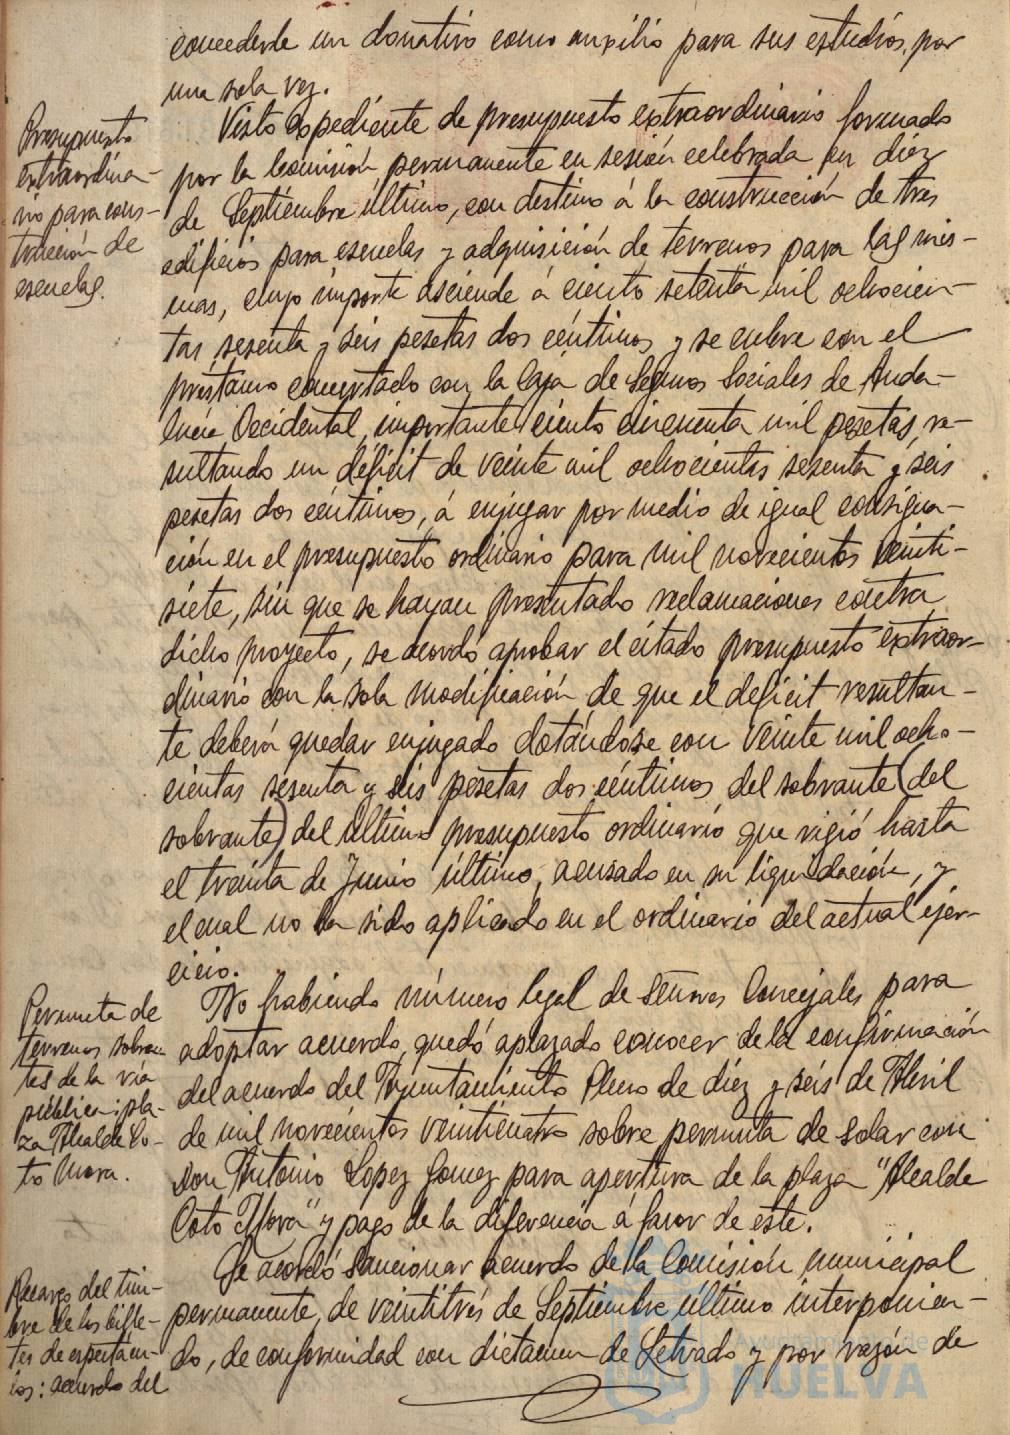 concederle un donativo como auxilio para sus estudios, por
una sola vez.
Presupuesto
extraordina-
rio para cons-
trucción de
escuelas.
Visto expediente de presupuesto extraordinario formado
por la Comisión permanente en sesión celebrada en diez
de Septiembre último, con destino á la construcción de tres
edificios para escuelas y adquisición de terrenos para las mis-
mas, cuyo importe asciende á ciento setenta mil ochocien-
tas sesenta y seis pesetas dos céntimos y se cubre con el
préstamo concertado con la Caja de Seguros Sociales de Anda-
lucía Occidental, importante ciento cincuenta mil pesetas, re-
sultando un déficit de veinte mil ochocientas sesenta y seis
pesetas dos céntimos, á enjugar por medio de igual consigna-
ción en el presupuesto ordinario para mil novecientos veinti-
siete, sin que se hayan presentado reclamaciones contra
dicho proyecto, se acordó aprobar el citado presupuesto extraor-
dinario con la sola modificación de que el déficit resultan-
te deberá quedar enjugado dotándose con veinte mil ocho-
cientas sesenta y seis pesetas dos céntimos del sobrante (del
sobrante) del último presupuesto ordinario que rigió hasta
el treinta de Junio último, acusado en su liquidación, y
el cual no ha sido aplicado en el ordinario del actual ejer-
cicio.
Permuta de
terrenos sobran-
tes de la vía
pública: pla-
za Alcalde Co-
to Mora.
No habiendo número legal de Señores Concejales para
adoptar acuerdo, quedó aplazado conocer de la confirmación
del acuerdo del Ayuntamiento Pleno de diez y seis de Abril
de mil novecientos veinticuatro sobre permuta de solar con
Don Antonio Lopez Gomez para apertura de la plaza "Alcalde
Coto Mora" y pago de la diferencia á favor de este.
Recargo del tim-
bre de los bille-
tes de espectácu-
los: acuerdo del
Se acordó sancionar acuerdo de la Comisión municipal
permanente, de veintitrés de Septiembre último interponien-
do, de conformidad con dictamen de Letrado y por razón de
Ayuntamiento de
HUELVA